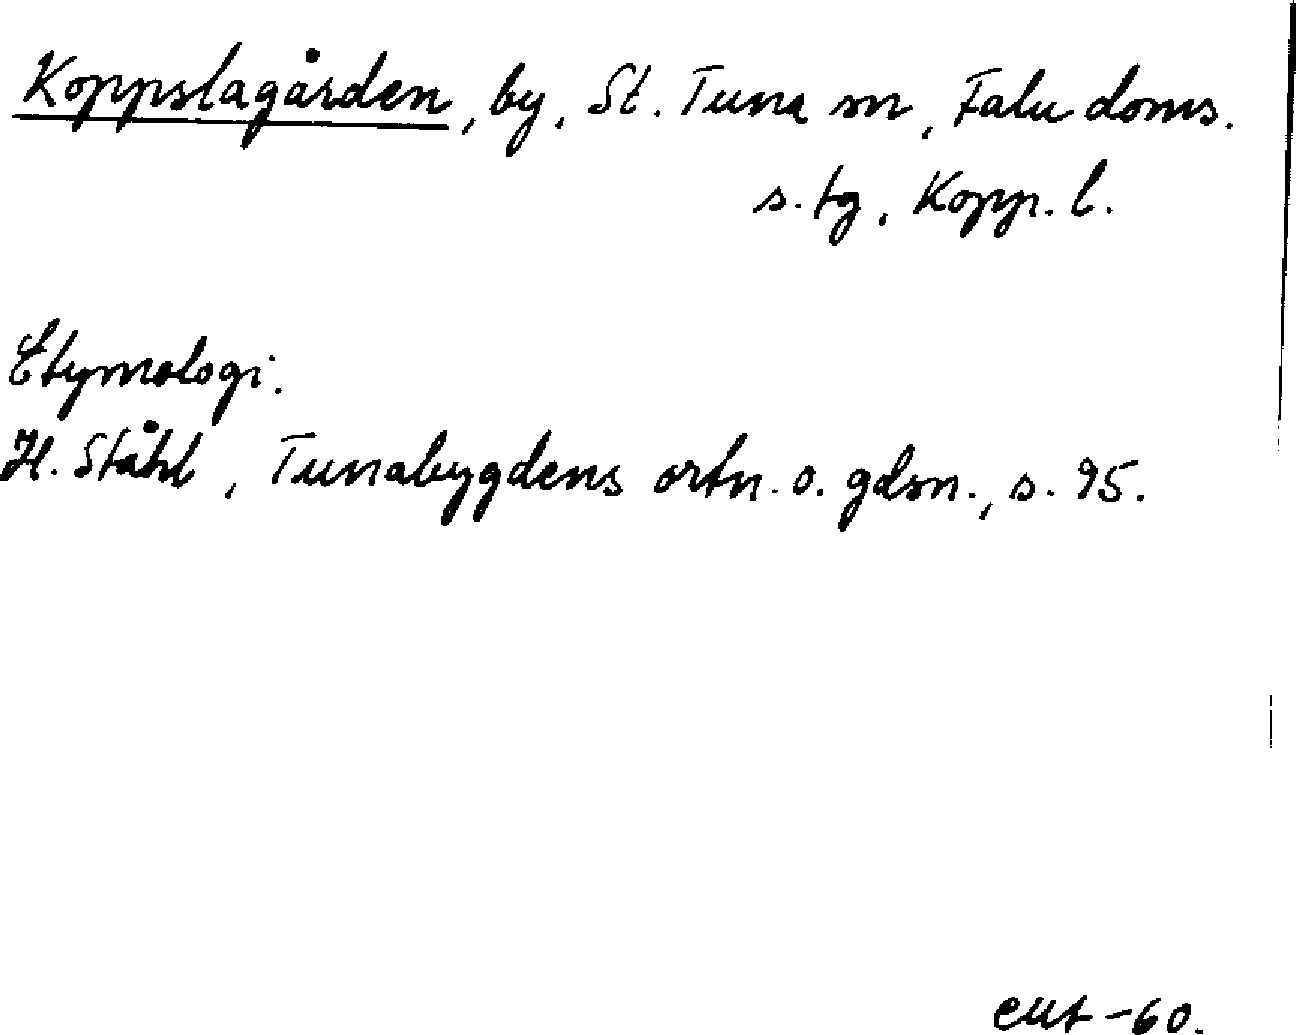 Koppslagården, by, St. Tuna sn, Falu doms.
s. tg, Kopp. l.
Etymologi.
H. Ståhl, Tunabygdens ortn. o. gdsn., s. 95.
-60.